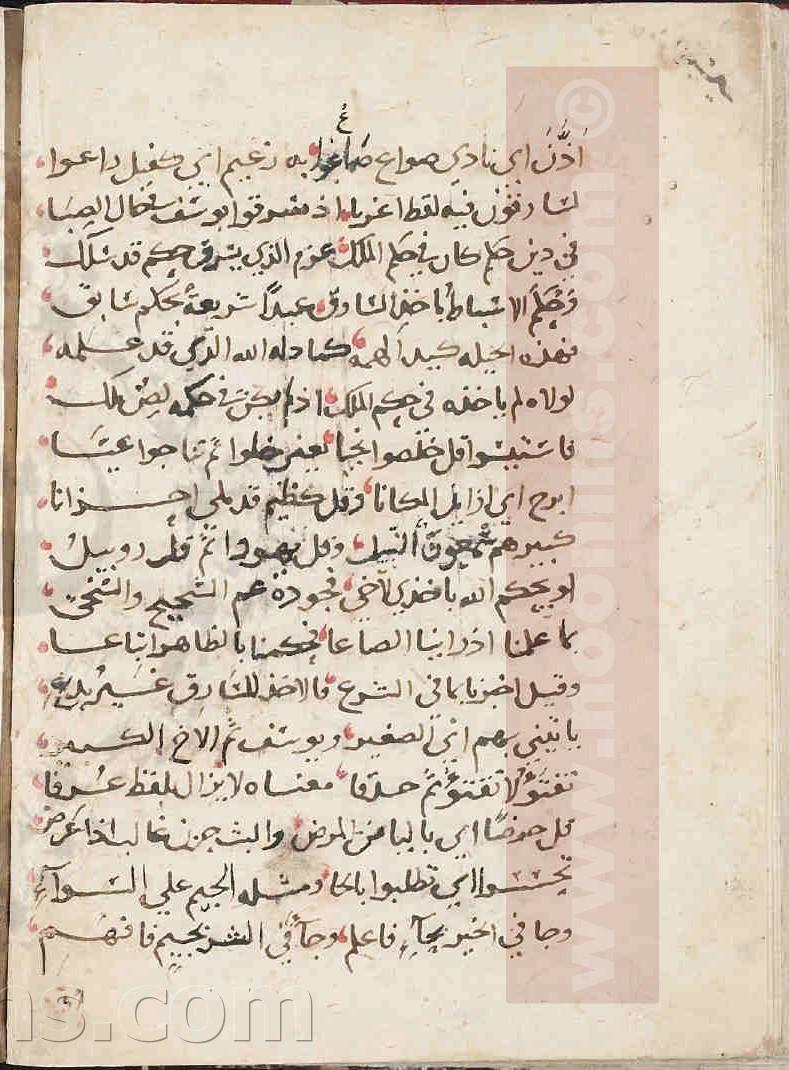 اَذَّنَ اي نادي صواع صاع به زعيم اي كفيل راعوا
لسارقون فيه لقط اغربا اذ سرقوا يوسف في حال الصبا
في دين حكم كان في حكم الملك غرم الذي يسرق حكم قد سلك
وحكم الاسباط باخذ السارق عبدًا شريعة بحكم سابق
فهذه الحيله كيد الهمه كما دله الله الذي قد علمه
لولاه لم ياخذه في حكم الملك اذ لم يكن في حكمه لص ملك
فاستيئسوا قل خلصوا نجيا يعني خلوا ثم تناجوا عيسا
ابرح اي ازايل المكانا وقل كظيم قد ملي احزانا
كبيرهم شمعون النبيل وقل يهودا ثم قل روبيل
او يحكم الله باخذي لاخي فجوده عم الشحيح والسخي
بما علمنا اذ راينا الصاعا فحكمنا بالظاهر اتباعا
وقيل اخبرنا بما في الشرع فالاخذ للسارق غير بدع
ياتيني بهم اخي الصغير ويوسف ثم الاخ الكبير
تفتؤ لا تفتؤ ثم حذفا معناه لا يزال بلقط عرفا
قل حرضًا اي باليا من المرض والبث حزن غالب اذا عرض
تحسسوا اي تطلبوا بالحا ومثله الجيم علي السواء
وجا في الخير بحاء فاعلم وجا في الشر بجيم فافهم
© www.noonins.com
ns.com